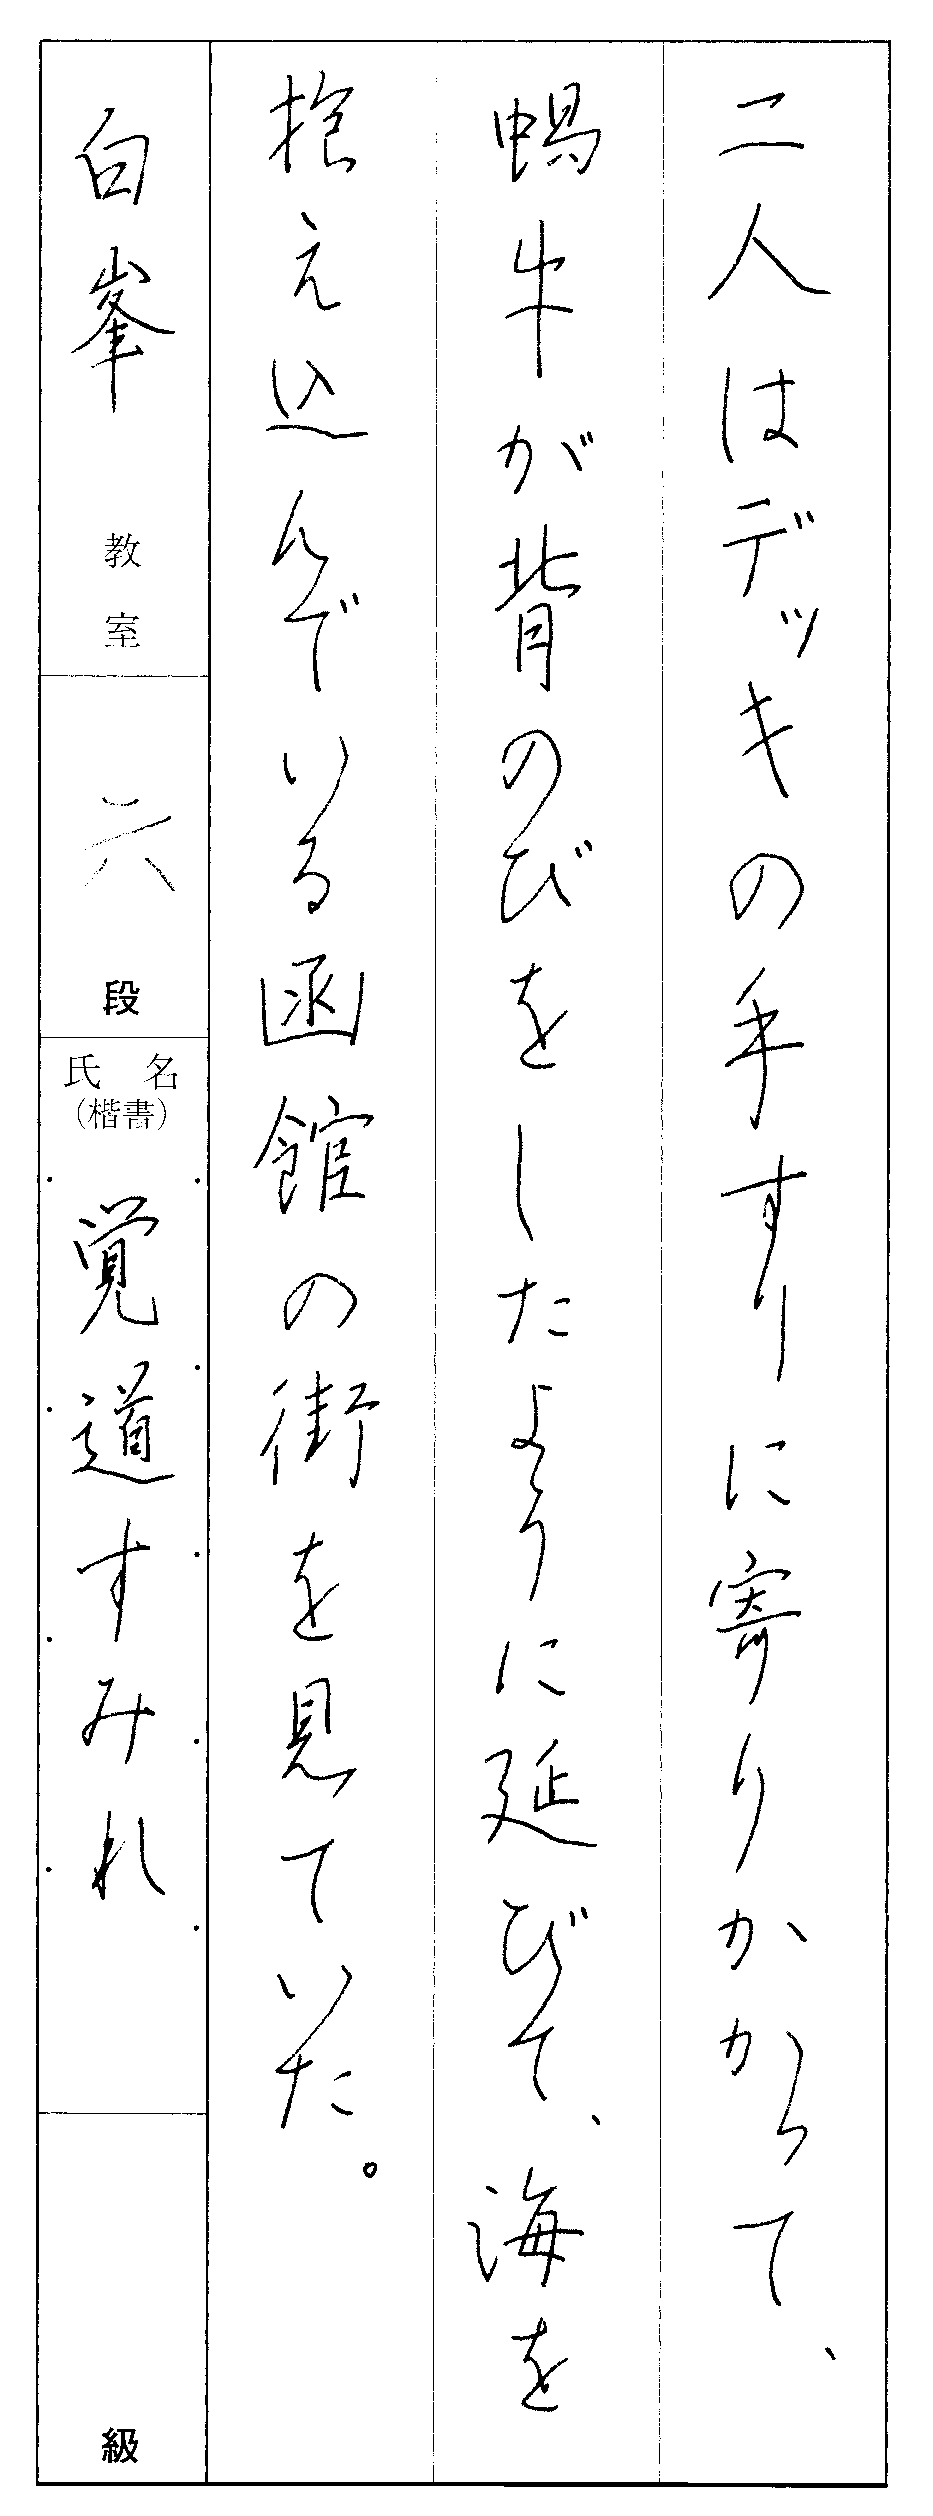 二人はデッキの手すりに寄りかかって、
蝸牛が背のびをしたように延びて、海を
抱え込んでいる函館の街を見ていた。
白峯教室
六段
氏名
(楷書)
覚道すみれ
級